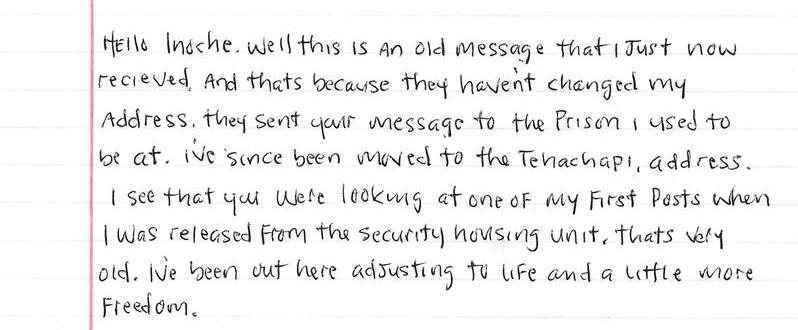 Hello Inoche. Well this is an old message that I just now
recieved. And thats because they haven't changed my
Address. they sent your message to the Prison I used to
be at. i've since been moved to the Tehachapi, address.
I see that you were looking at one of my First Posts when
I was released from the security housing unit, thats very
old. I've been out here adjusting to life and a little more
Freedom.